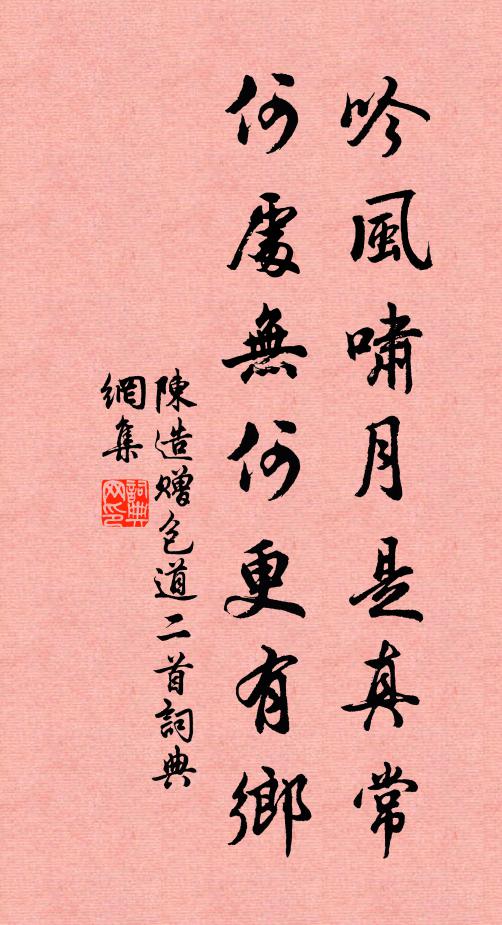 吟風嘯月是真常
何處無何更有鄉
陳造贈包道二首詞典
網集
詞典網印